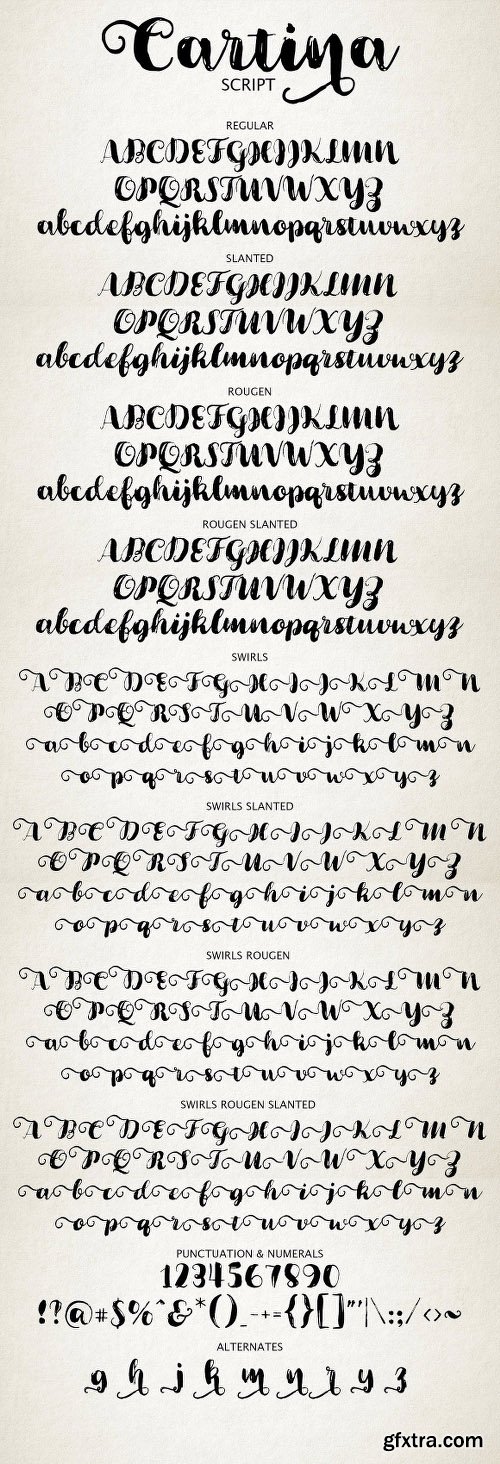 Cartina
SCRIPT
REGULAR
ABCDEFGHIJKLMN
OPQRSTUVWXYZ
abcdefghijklmnopqrstuvwxyz
SLANTED
ABCDEFGHIJKLMN
OPQRSTUVWXYZ
abcdefghijklmnopqrstuvwxyz
ROUGEN
ABCDEFGHIJKLMN
OPQRSTUVWXYZ
abcdefghijklmnopqrstuvwxyz
ROUGEN SLANTED
ABCDEFGHIJKLMN
OPQRSTUVWXYZ
abcdefghijklmnopqrstuvwxyz
SWIRLS
A B C D E F G H I J K L M N
O P Q R S T U V W X Y Z
a b c d e f g h i j k l m n
o p q r s t u v w x y z
SWIRLS SLANTED
A B C D E F G H I J K L M N
O P Q R S T U V W X Y Z
a b c d e f g h i j k l m n
o p q r s t u v w x y z
SWIRLS ROUGEN
A B C D E F G H I J K L M N
O P Q R S T U V W X Y Z
a b c d e f g h i j k l m n
o p q r s t u v w x y z
SWIRLS ROUGEN SLANTED
A B C D E F G H I J K L M N
O P Q R S T U V W X Y Z
a b c d e f g h i j k l m n
o p q r s t u v w x y z
PUNCTUATION & NUMERALS
1234567890
!?@#$%^&*()_-+={}[]"'|\:;/<>~
ALTERNATES
g h j k m n r y z
gfxtra.com